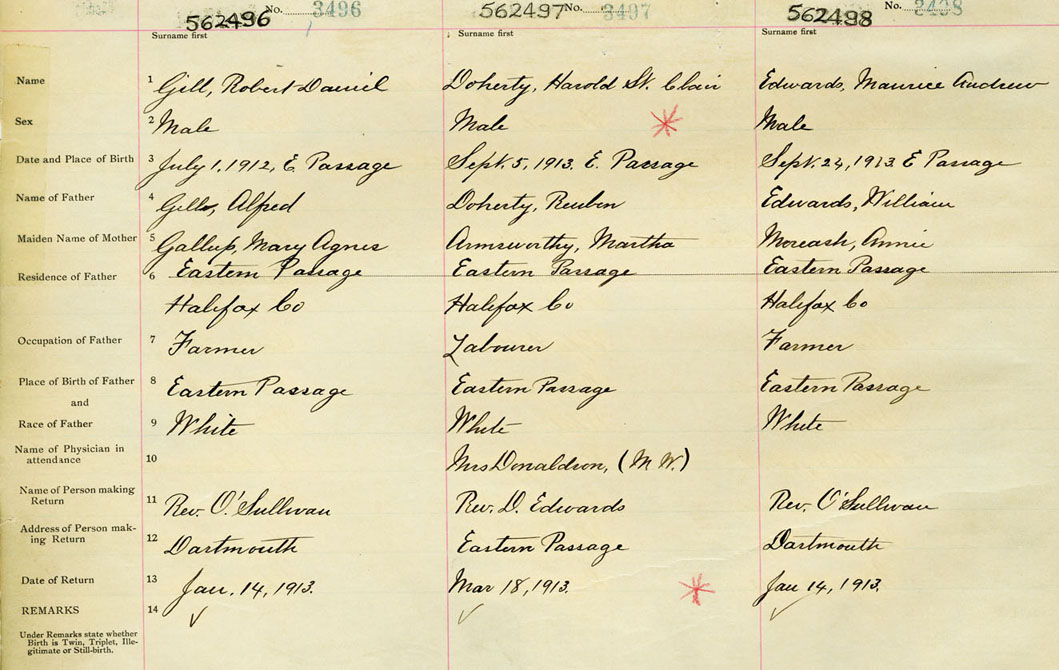 562496 No. 3496 562497 No. 3497 562498 No. 3498
Surname first Surname first Surname first
Name 1 Gill, Robert Daniel Doherty, Harold St. Clair Edwards, Maurice Andrew
Sex 2 Male Male Male
Date and Place of Birth 3 July 1, 1912, E Passage Sept. 5, 1913. E. Passage Sept. 24, 1913 E Passage
Name of Father 4 Gill, Alfred Doherty, Reuben Edwards, William
Maiden Name of Mother 5 Gallup, Mary Agnes Armsworthy, Martha Moreash, Annie
Residence of Father 6 Eastern Passage Eastern Passage Eastern Passage
Halifax Co Halifax Co Halifax Co
Occupation of Father 7 Farmer Labourer Farmer
Place of Birth of Father 8 Eastern Passage Eastern Passage Eastern Passage
and
Race of Father 9 White White White
Name of Physician in
attendance 10 Mrs Donaldson, (M W.)
Name of Person making
Return 11 Rev. O'Sullivan Rev. D. Edwards Rev. O'Sullivan
Address of Person mak-
ing Return 12 Dartmouth Eastern Passage Dartmouth
Date of Return 13 Jan. 14, 1913. Mar 18, 1913. Jan 14, 1913.
REMARKS 14
Under Remarks state whether
Birth is Twin, Triplet, Ille-
gitimate or Still-birth.